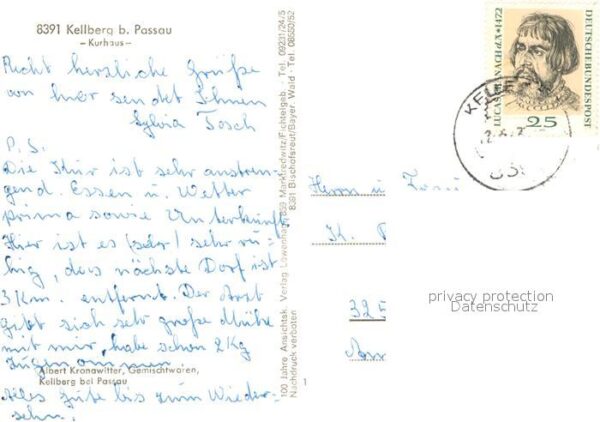 8391 Kellberg b. Passau
-Kurhaus-
Recht herzliche Grüße
von hier sendet Ihnen
Sylvia Tosch
P.S.
Die Kur ist sehr anstren-
gend. Essen u. Wetter
prima sowie Unterkunft.
Hier ist es (sehr) sehr ru-
hig, das nächste Dorf ist
3 Km. entfernt. Der Arzt
gibt sich sehr große Mühe
mit mir, habe schon 2 Kg
Albert Kronawitter, Gemischtwaren,
Kellberg bei Passau
Alles Gute bis zum Wieder-
sehn.
100 Jahre Ansichtsk. Verlag Löwenhain 859 Marktredwitz/Fichtelgeb. Tel. 09231/24/5
Nachdruck verboten 8391 Bischofsreut/Bayer. Wald - Tel. 08550/52
1
LUCAS CRANACH d.Ä. *1472
DEUTSCHE BUNDESPOST
25
Herrn u.
K.
325
privacy protection
Datenschutz